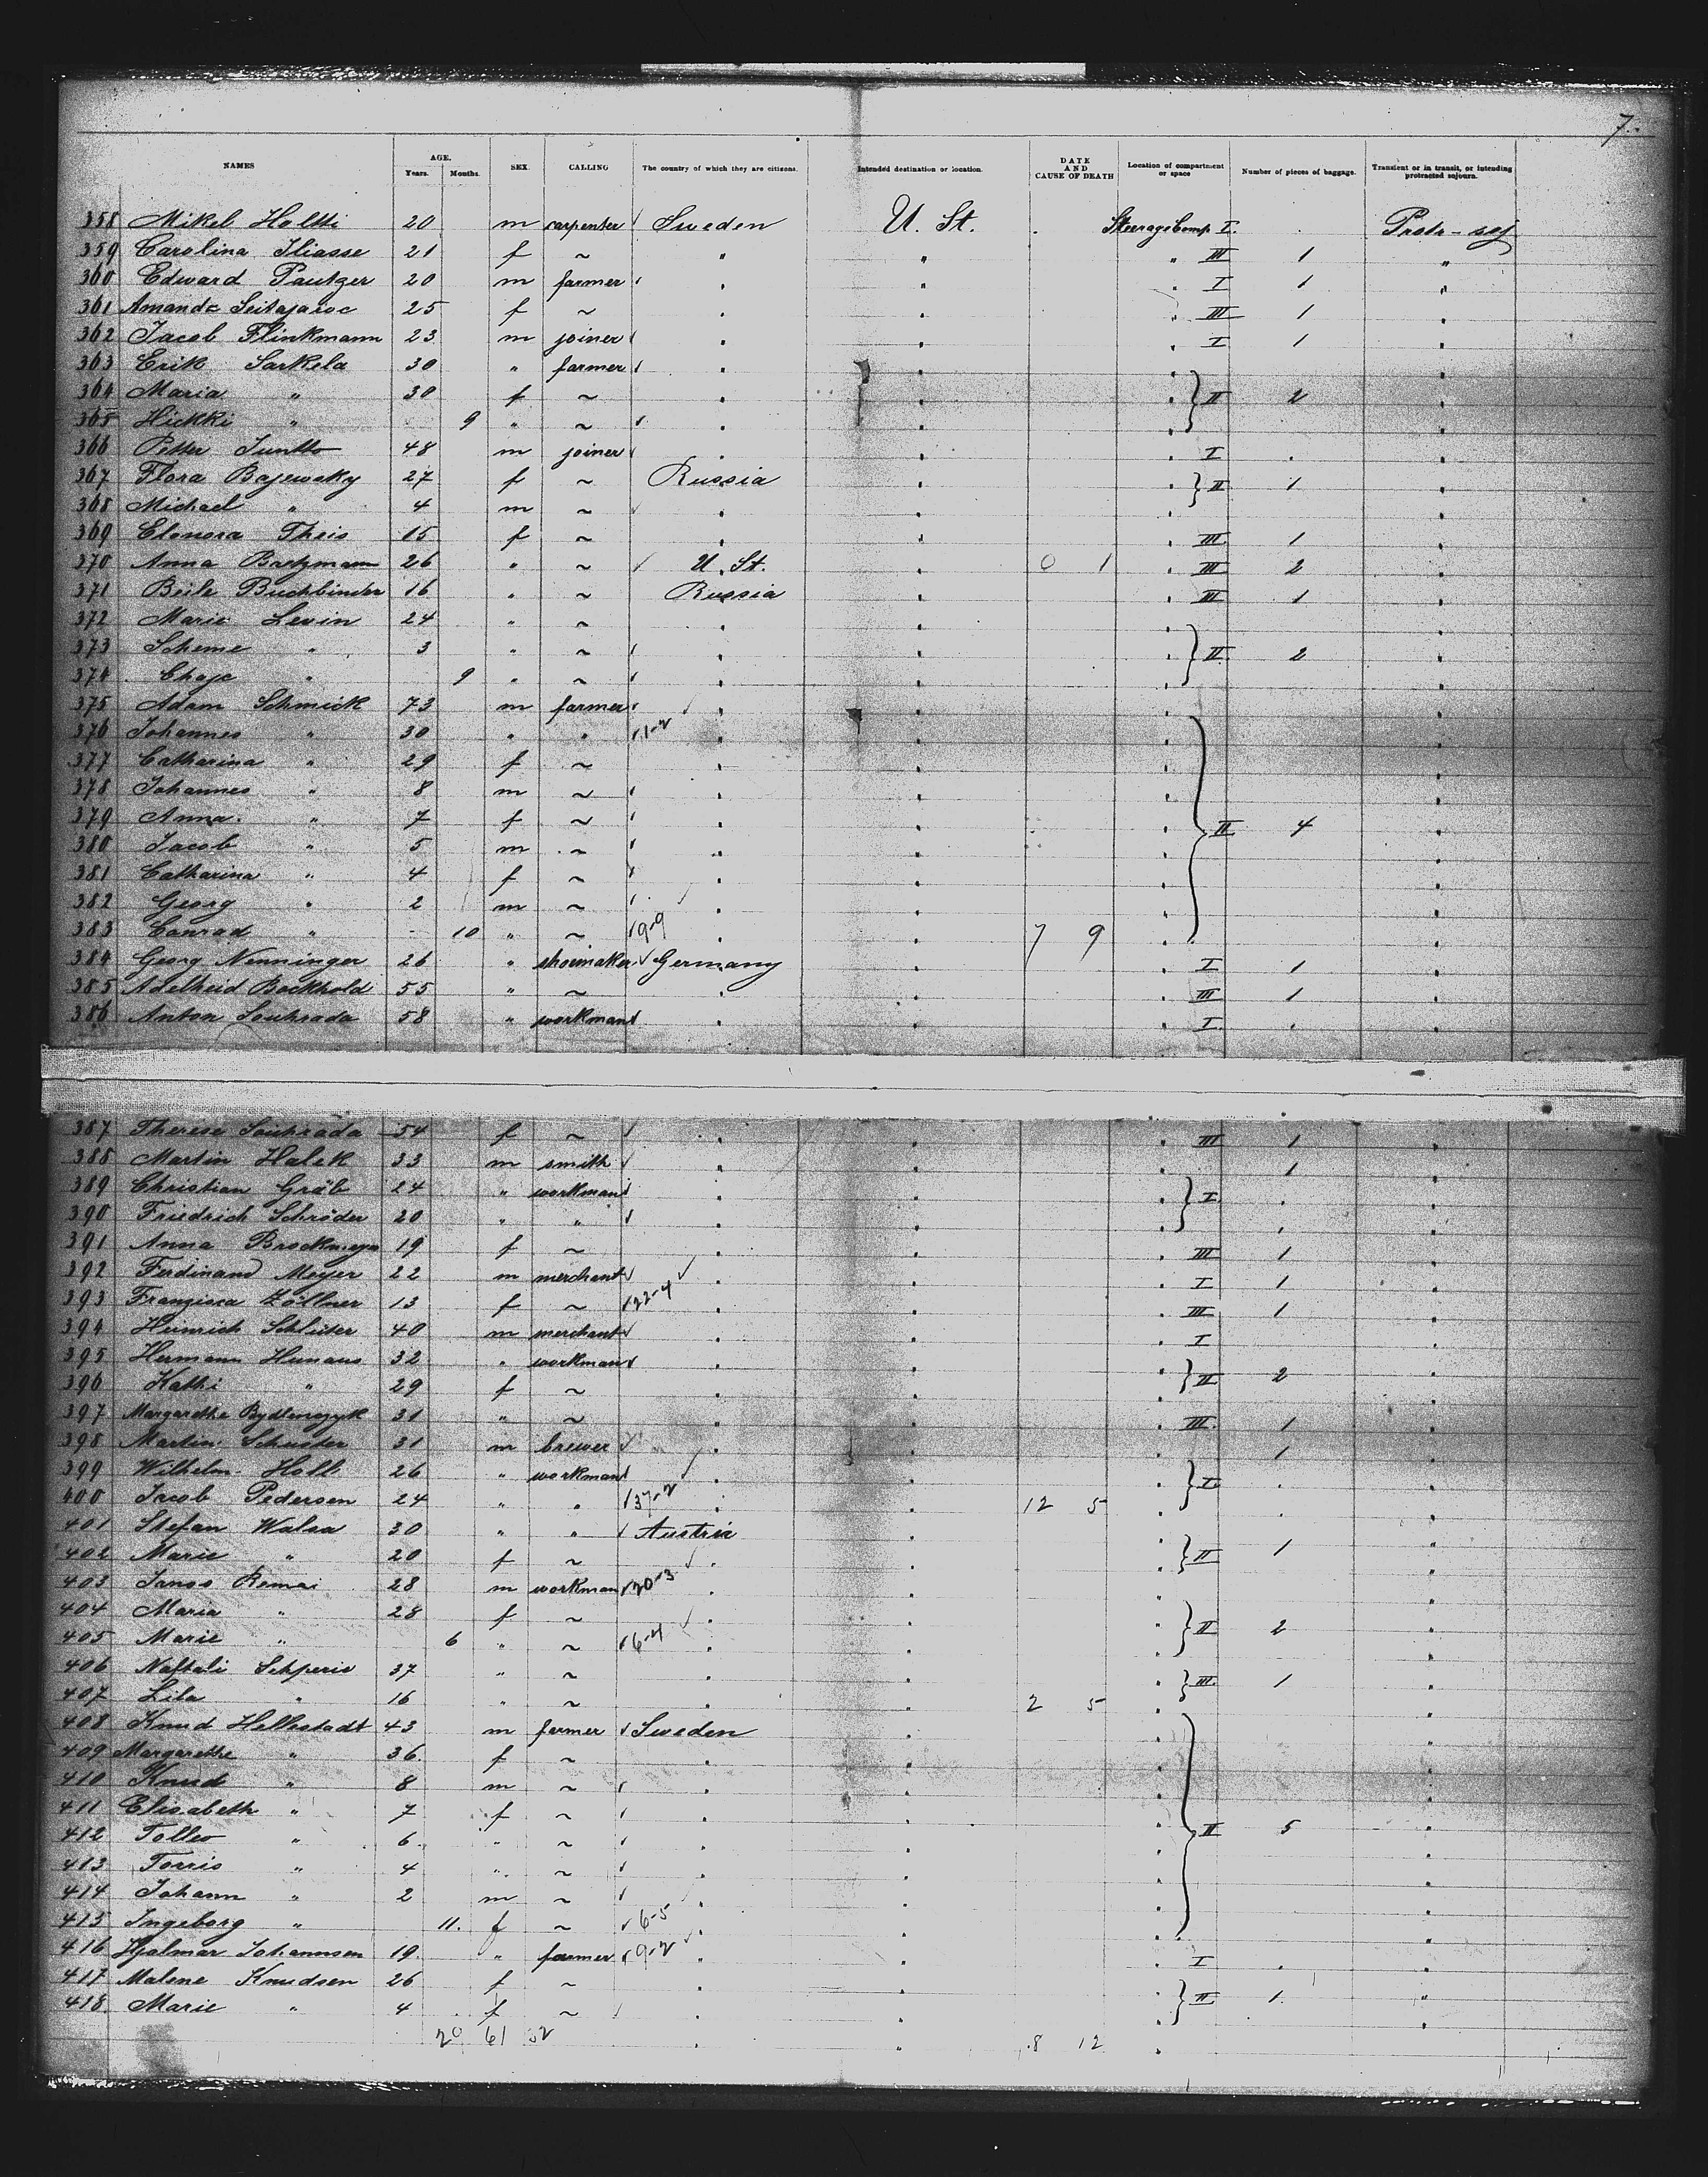 7.
NAMES AGE. Years. Months. SEX. CALLING The country of which they are citizens. Intended destination or location. DATE AND CAUSE OF DEATH Location of compartment or space Number of pieces of baggage. Transient or in transit, or intending protracted sojourn.
358 Mikel Holtti 20 m carpenter Sweden U. St. Steerage Comp. I. Protr-soj
359 Carolina Iliasse 21 f ~ " " " III 1 "
360 Edward Pautzer 20 m farmer " " " I 1 "
361 Amanda 25 f ~ " " " III 1 "
362 Jacob Flinkmann 23 m joiner " " " I 1 "
363 Erik Sarkela 30 " farmer " " " "
364 Maria " 30 f ~ " " " II 2 "
365 Hickki " 9 " ~ " " " "
366 Petter Juntto 48 m joiner " " " I . "
367 Flora Bajewsky 27 f ~ Russia " " II 1 "
368 Michael " 4 m ~ " " " "
369 Elenora Theis 15 f ~ " " " III 1 "
370 Anna Bartzmann 26 " ~ U. St. " 0 1 " III 2 "
371 Beile Buchbinder 16 " ~ Russia " " III 1 "
372 Marie Levin 24 " ~ " " " "
373 Scheme " 3 " ~ " " " II 2 "
374 Chaje " 9 " ~ " " " "
375 Adam Schmick 73 m farmer " " " "
376 Johannes " 30 " " 1-2 " " " "
377 Catharina " 29 f ~ " " " "
378 Johannes " 8 m ~ " " " "
379 Anna " 7 f ~ " " " II 4 "
380 Jacob " 5 m ~ " " " "
381 Catharina " 4 f ~ " " " "
382 Georg " 2 m ~ " " " "
383 Conrad " 10 " ~ 9-9 " " 7 9 " "
384 Georg Nenninger 26 " shoemaker Germany " " I 1 "
385 Adelheid Bockhold 55 " ~ " " " III 1 "
386 Anton Souhrada 58 " workman " " " I . "
387 Therese Souhrada 54 f ~ " " " III 1 "
388 Martin Halek 33 m smith " " " 1 "
389 Christian Gräb 24 " workman " " " I . "
390 Friedrich Schröder 20 " " " " " . "
391 Anna Brockmeyer 19 f ~ " " " III 1 "
392 Ferdinand Meyer 22 m merchant " " " I 1 "
393 Franzisca Zöllner 13 f ~ 22-4 " " " III 1 "
394 Heinrich Schlüter 40 m merchant " " " I "
395 Hermann Humaus 32 " workman " " " "
396 Kathi " 29 f ~ " " " II 2 "
397 Margarethe 31 " ~ " " " III. 1 "
398 Martin Schuster 31 m brewer " " " 1 "
399 Wilhelm Holl 26 " workman " " " I. . "
400 Jacob Pedersen 24 " " 37-2 " " 12 5 " . "
401 Stefan Walsa 30 " " Austria " " "
402 Marie " 20 f ~ " " " II 1 "
403 Janos Remai 28 m workman 20-3 " " " "
404 Maria " 28 f ~ " " " II 2 "
405 Marie " 6 " ~ 6-4 " " " "
406 Naftali Schperis 37 " ~ " " " III. 1 "
407 Lila " 16 " ~ " " 2 5 " "
408 Knud Hellestadt 43 m farmer Sweden " " "
409 Margarethe " 36. f ~ " " " "
410 Knud " 8 m ~ " " " "
411 Elisabeth " 7 f ~ " " " "
412 Tollev " 6. " ~ " " " II 5 "
413 Torris " 4 " ~ " " " "
414 Johann " 2 m ~ " " " "
415 Ingeborg " 11. f ~ 6-5 " " " "
416 Hjalmar Johannsen 19. " farmer 9-2 " " " I . "
417 Malene Knudsen 26 f ~ " " " II 1. "
418. Marie " 4 f ~ " " " "
20 61 32 " " 8 12 "